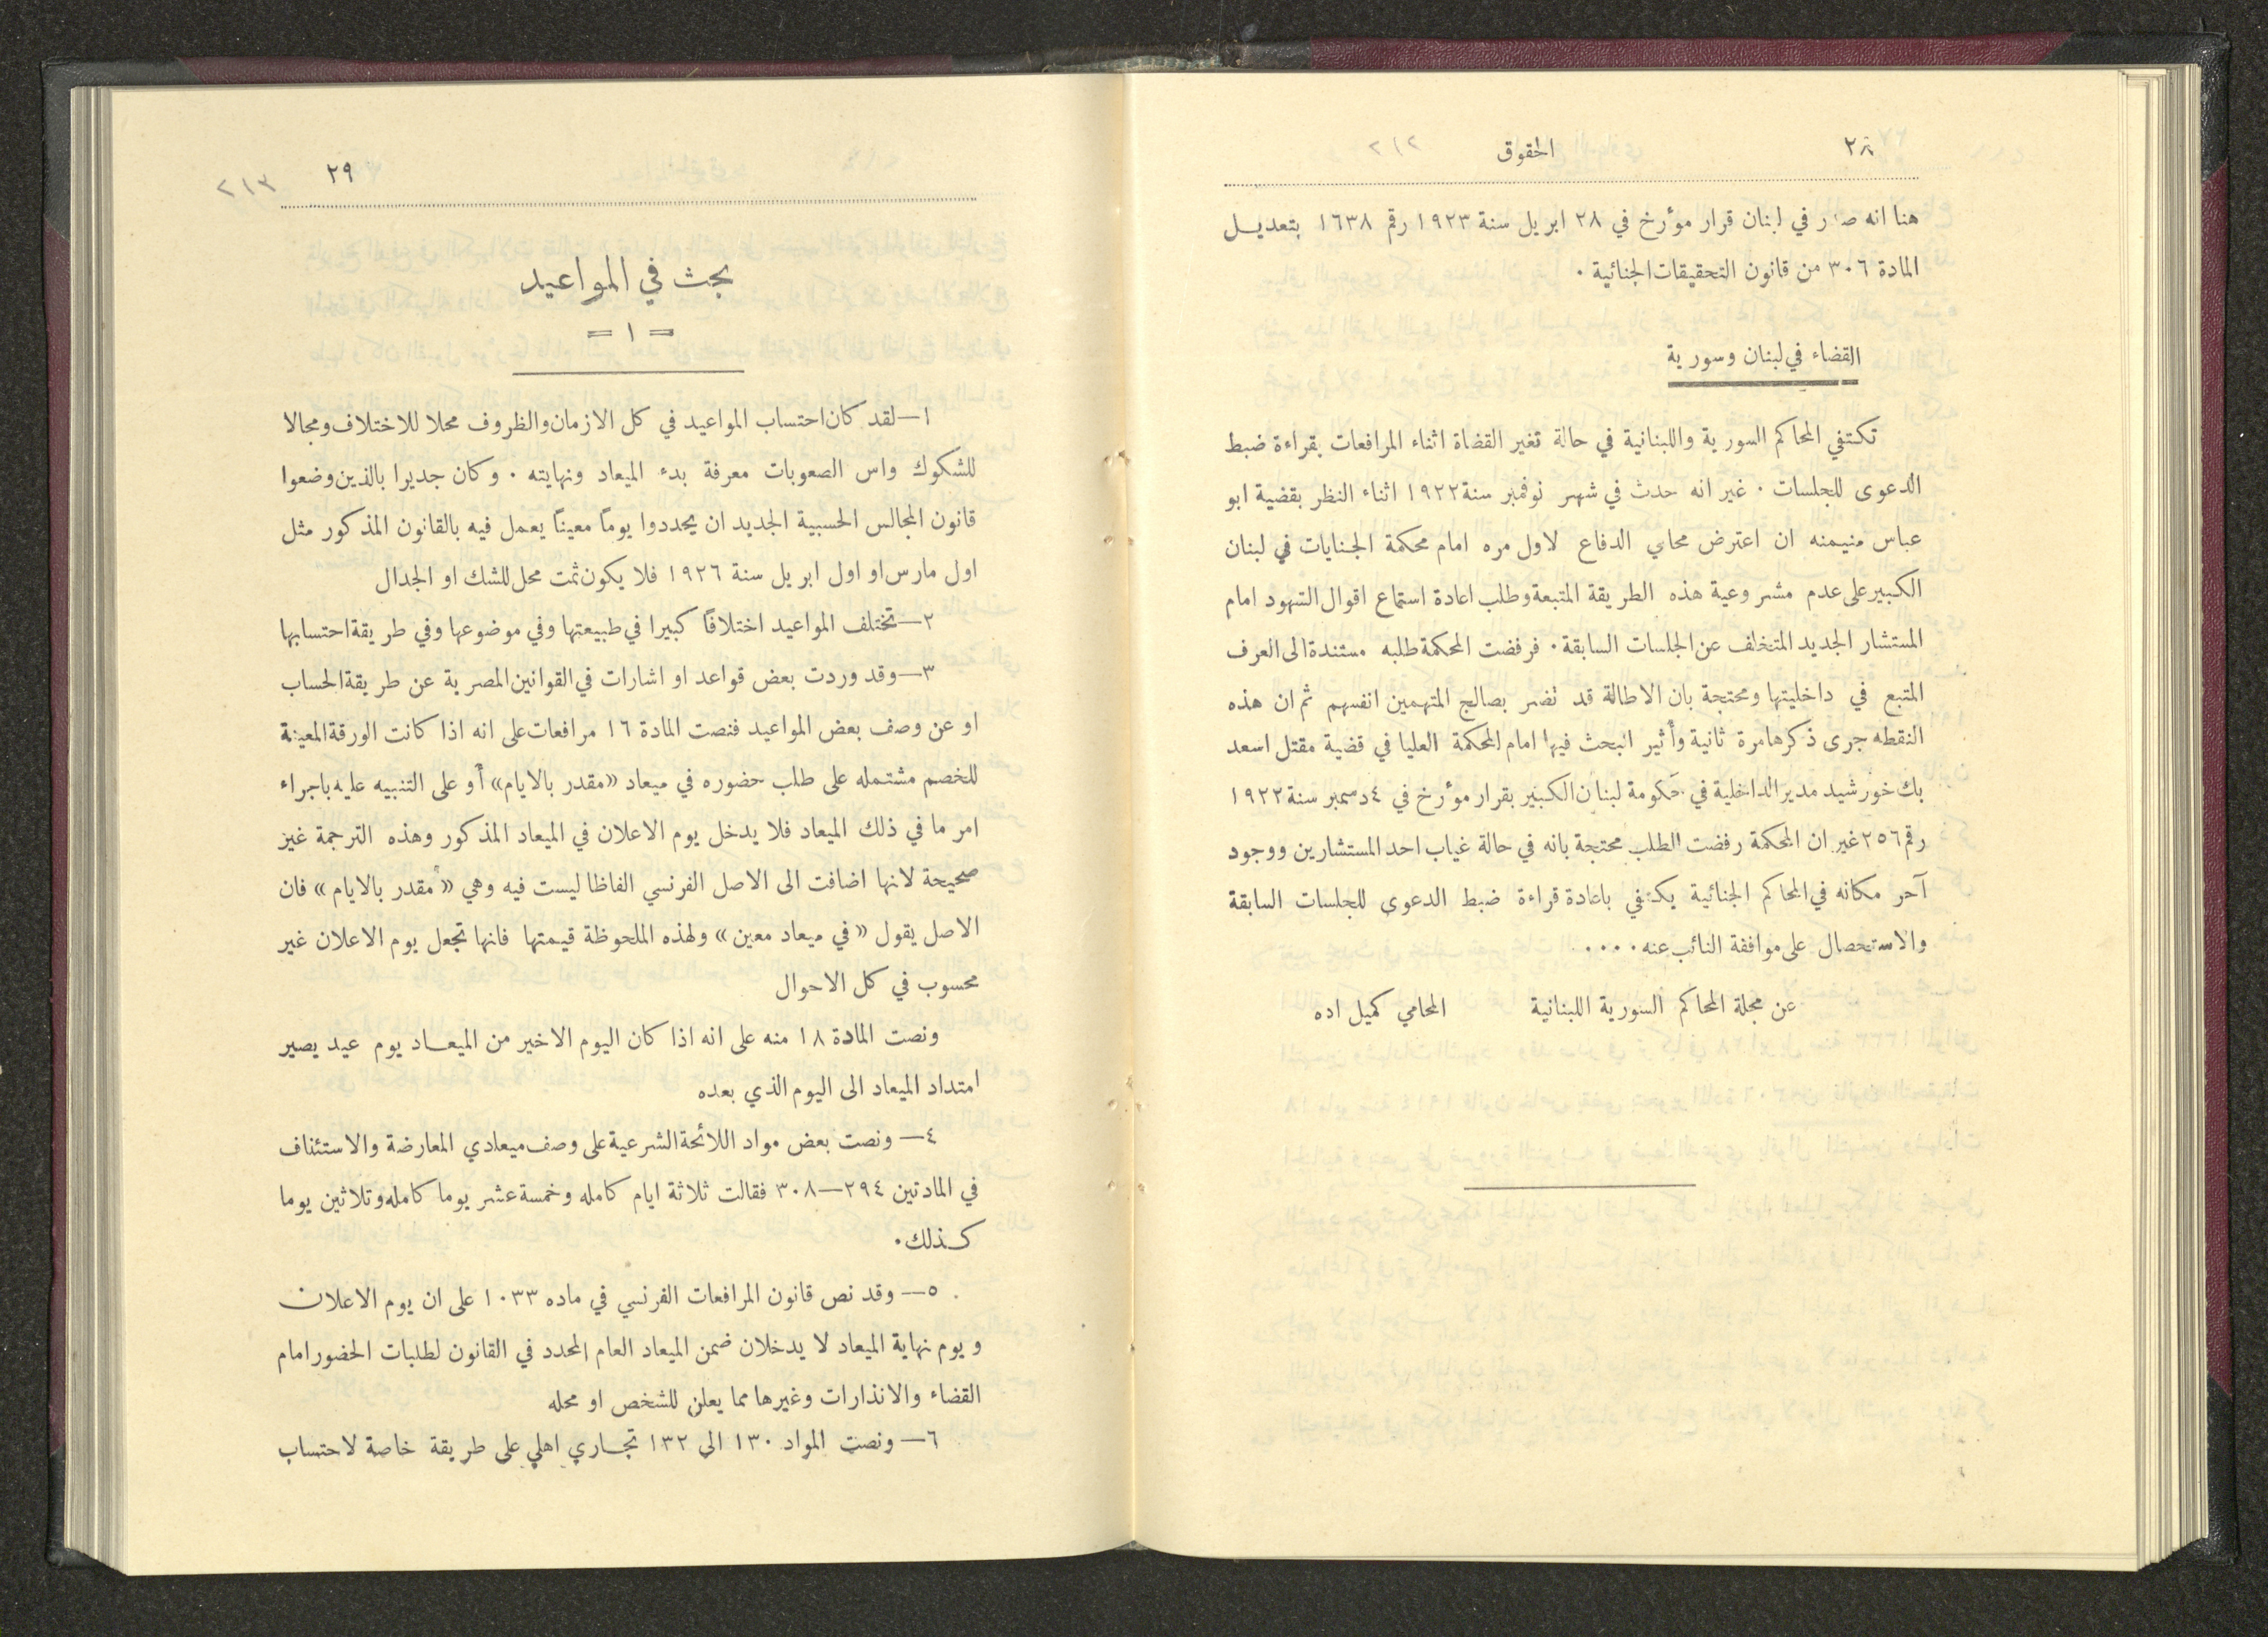 ٢٨
الحقوق
٢١٢
هنا انه صدر في لبنان قرار مؤرخ في ٢٨ ابريل سنة ١٩٢٣ رقم ١٦٣٨ بتعديل
المادة ٣٠٦ من قانون التحقيقات الجنائية ٠
القضاء في لبنان وسورية
تكتفي المحاكم السورية واللبنانية في حالة تغير القضاة اثناء المرافعات بقراءة ضبط
الدعوى للجلسات ٠ غير انه حدث في شهر نوفمبر سنة ١٩٢٢ اثناء النظر بقضية ابو
عباس منيمنه ان اعترض محامي الدفاع لاول مره امام محكمة الجنايات في لبنان
الكبير على عدم مشروعية هذه الطريقة المتبعة وطلب اعادة استماع اقوال الشهود امام
المستشار الجديد المتخلف عن الجلسات السابقة ٠ فرفضت المحكمة طلبه مستندة الى العرف
المتبع في داخليتها ومحتجة بان الاطالة قد تضر بصالح المتهمين انفسهم ثم ان هذه
النقطه جرى ذكرها مرة ثانية وأثير البحث فيها امام المحكمة العليا في قضية مقتل اسعد
بك خورشيد مدير الداخلية في حكومة لبنان الكبير بقرار مؤرخ في ٤ دسمبر سنة ١٩٢٢
رقم ٢٥٦ غير ان المحكمة رفضت الطلب محتجة بانه في حالة غياب احد المستشارين ووجود
آحر مكانه في المحاكم الجنائية يكتفي باعادة قراءة ضبط الدعوى للجلسات السابقة
والاستحصال على موافقة النائب عنه ٠٠٠٠
عن مجلة المحاكم السورية اللبنانية المحامي كميل اده
٢٩
٢١٣
بحث في المواعيد
= ١ =
١— لقد كان احتساب المواعيد في كل الازمان والظروف محلا للاختلاف ومجالا
للشكوك واس الصعوبات معرفة بدء الميعاد ونهايته ٠ وكان جديرا بالذين وضعوا
قانون المجالس الحسبية الجديد ان يحددوا يوماً معيناً يعمل فيه بالقانون المذكور مثل
اول مارس او اول ابريل سنة ١٩٢٦ فلا يكون ثمت محل للشك او الجدال
٢— تختلف المواعيد اختلافاً كبيرا في طبيعتها وفي موضوعها وفي طريقة احتسابها
٣— وقد وردت بعض قواعد او اشارات في القوانين المصرية عن طريقة الحساب
او عن وصف بعض المواعيد فنصت المادة ١٦ مرافعات على انه اذا كانت الورقة المعينة
للخصم مشتمله على طلب حضوره في ميعاد «مقدر بالايام» أو على التنبيه عليه باجراء
امر ما في ذلك الميعاد فلا يدخل يوم الاعلان في الميعاد المذكور وهذه الترجمة غيز
صحيحة لانها اضافت الى الاصل الفرنسي الفاظا ليست فيه وهي «مقدر بالايام» فان
الاصل يقول «في ميعاد معين» ولهذه الملحوظة قيمتها فانها تجعل يوم الاعلان غير
محسوب في كل الاحوال
ونصت المادة ١٨ منه على انه اذا كان اليوم الاخير من الميعاد يوم عيد يصير
امتداد الميعاد الى اليوم الذي بعده
٤— ونصت بعض مواد اللائحة الشرعية على وصف ميعادي المعارضة والاستئناف
في المادتين ٢٩٤—٣٠٨ فقالت ثلاثة ايام كامله وخمسة عشر يوما كامله وثلاثين يوما
كذلك ٠
٥— وقد نص قانون المرافعات الفرنسي في ماده ١٠٣٣ على ان يوم الاعلان
ويوم نهاية الميعاد لا يدخلان ضمن الميعاد العام المحدد في القانون لطلبات الحضور امام
القضاء والانذارات وغيرها مما يعلن للشخص او محله
٦— ونصت المواد ١٣٠ الى ١٣٢ تجاري اهلي على طريقة خاصة لاحتساب